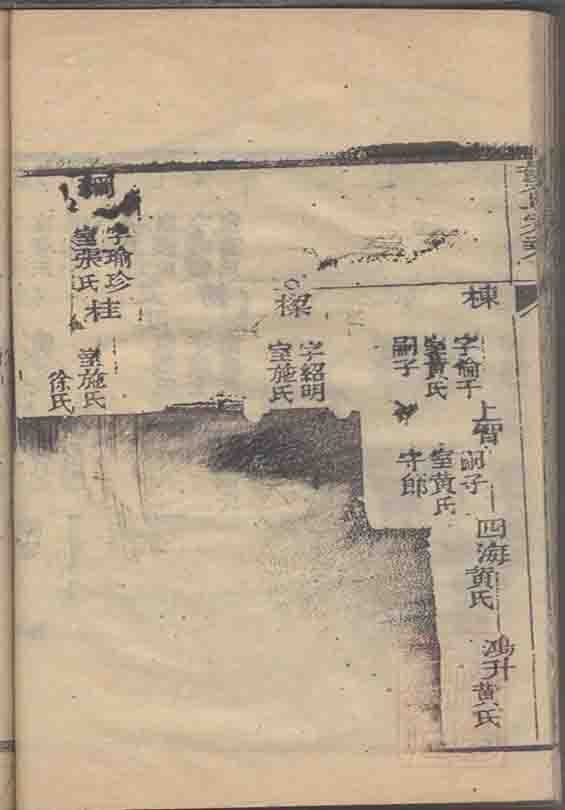 棟
字倫千
室黃氏
嗣子
上智
嗣子
室黃氏
守郎
四海
黃氏
鴻升
黃氏
樑
字紹明
室施氏
綱
字瑜珍
室張氏
桂
室施氏
徐氏